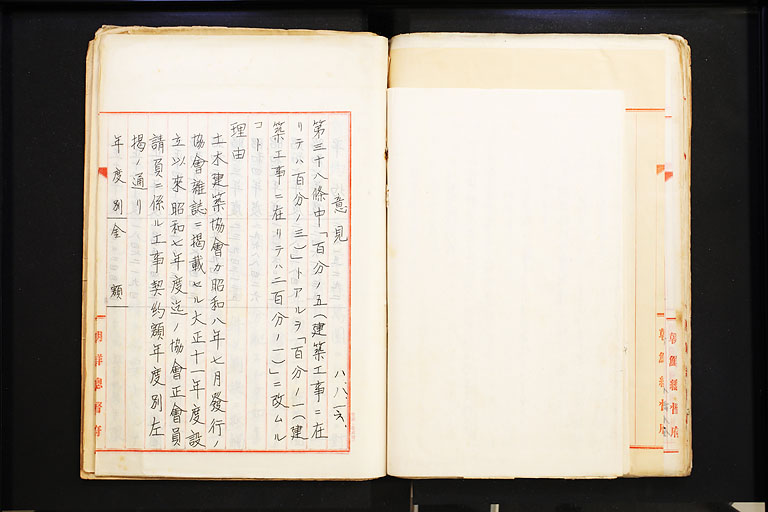 意見
八、八、一六、
第三十八條中「百分ノ五(建築工事ニ在
リテハ百分ノ三)」トアルヲ「百分ノ一(建
築工事ニ在リテハ二百分ノ一)」ニ改ムル
コト
理由
土木建築協會カ昭和八年七月發行ノ
協會雜誌ニ揭載セル大正十一年度設
立以來昭和七年度迄ノ協會正會員
請負ニ係ル工事契約額年度別左
揭ノ通リ
年度別 金額
朝鮮總督府
朝鮮總督府
朝鮮總督府